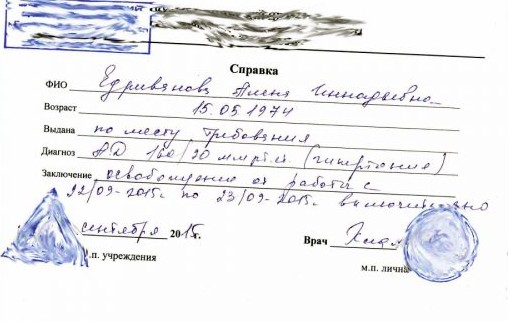 Справка
ФИО Едривянова Алена Геннадьевна
Возраст 15.05.1974
Выдана по месту требования
Диагноз АД 160/90 мм рт.ст. (гипертония)
Заключение освобождение от работы с
22/09-2015г. по 23/09-2015г. включительно
сентября 2015г.
Врач
м.п. учреждения
м.п. лична